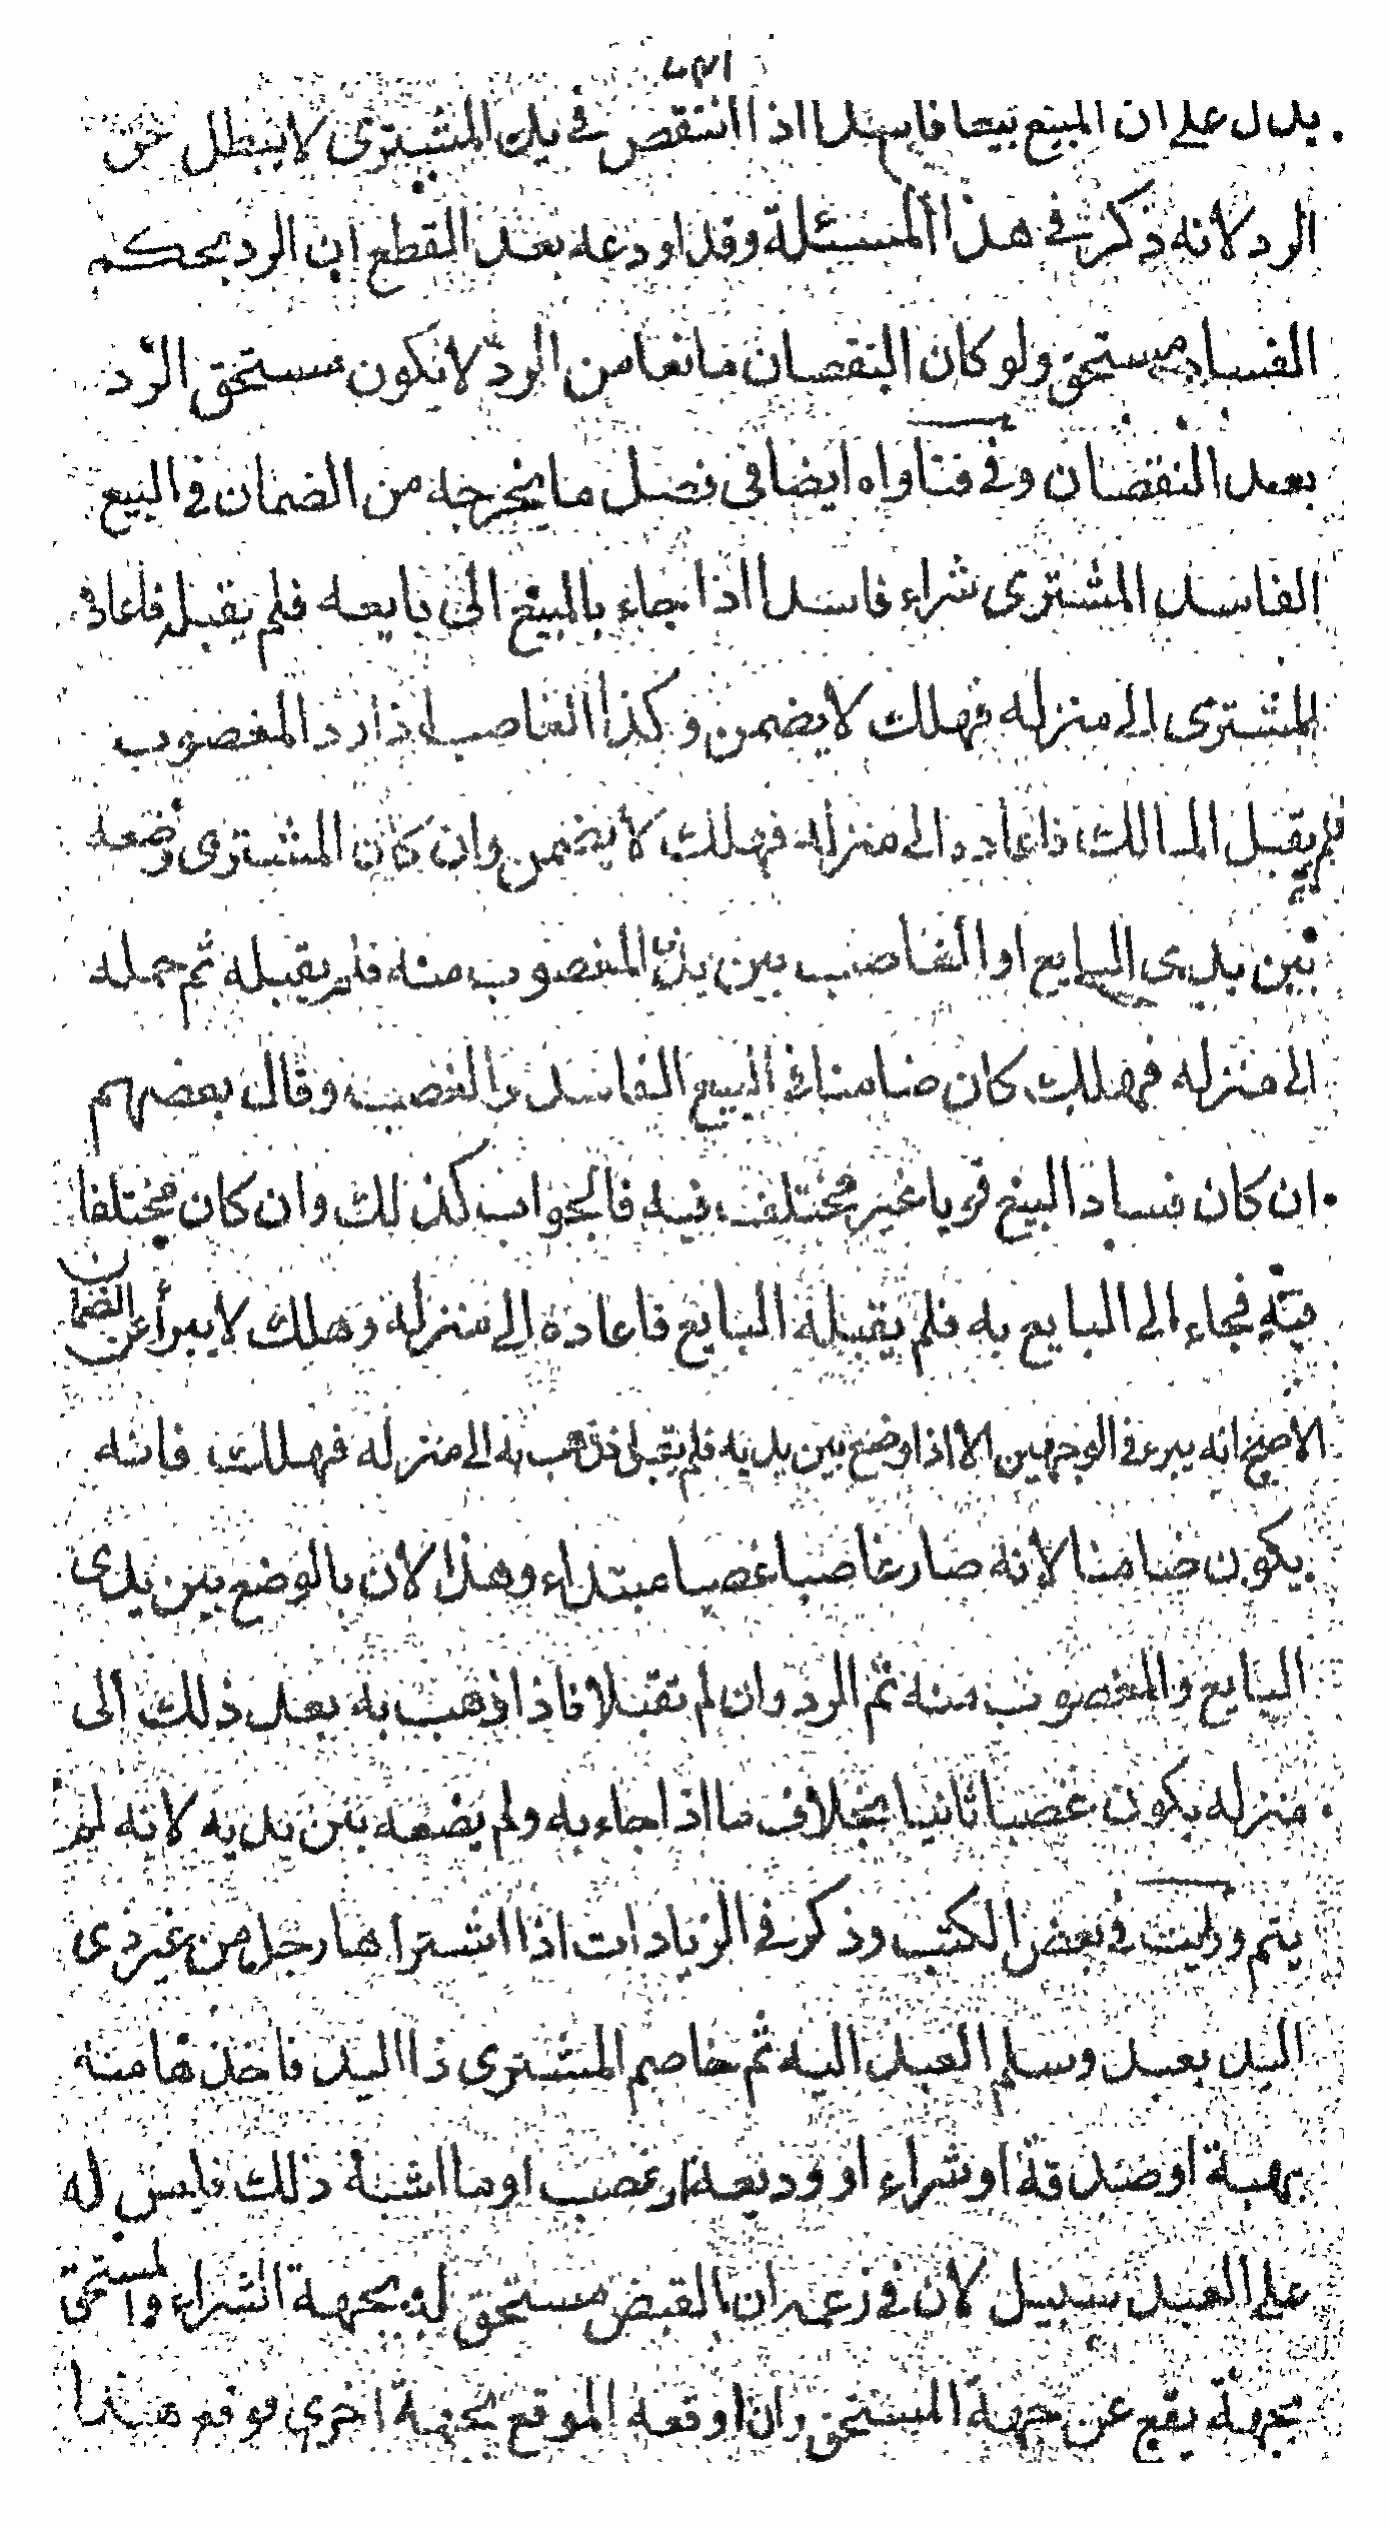 يدل على ان المبيع بيعا فاسدا اذا انتقص في يد المشترى لا يبطل حق
الرد لانه ذكر في هذا المسئلة وقد اودعه بعد القطع ان الرد بحكم
الفساد مستحق ولو كان النقصان مانعا من الرد لا يكون مستحق الرد
بعد النقصان وفي فتاواه ايضا في فصل ما يخرجه من الضمان في البيع
الفاسد المشترى شراء فاسدا اذا جاء بالمبيع الى بايعه فلم يقبله فاعاده
المشترى الى منزله فهلك لا يضمن وكذا الغاصب اذا رد المغصوب
فلم يقبل المالك فاعاده الى منزله فهلك لا يضمن وان كان المشترى وضعه
بين يدى البايع او الغاصب بين يدى المغصوب منه فلم يقبله ثم حمله
الى منزله فهلك كان ضامنا في البيع الفاسد والغصب وقال بعضهم
ان كان فساد البيع قويا غير مختلف فيه فالجواب كذلك وان كان مختلفا
فيه فجاء الى البايع به فلم يقبله البايع فاعاده الى منزله وهلك لا يبرأ عن الضمان
الاصح انه يبرء في الوجهين الا اذا وضع بين يديه فلم يقبل فذهب به الى منزله فهلك فانه
يكون ضامنا لانه صار غاصبا غصبا مبتداء وهذا لان بالوضع بين يدى
البايع والمغصوب منه تم الرد وان لم يقبلا فاذا ذهب به بعد ذلك الى
منزله يكون غصبا ثانيا بخلاف ما اذا جاء به ولم يضعه بين يديه لانه لم
يتم ورايت في بعض الكتب وذكر في الزيادات اذا اشتراها رجل من غير ذى
اليد بعبد وسلم العبد اليه ثم خاصم المشترى ذا اليد فاخذها منه
بهبة او صدقة او شراء او وديعة او غصب او ما اشبه ذلك فليس له
على العبد سبيل لان في زعمه ان القبض مستحق له بجهة الشراء والمستحق
بجهة يقع عن جهة المستحق وان اوقعه الموقع بجهة اخرى فوقع هذا